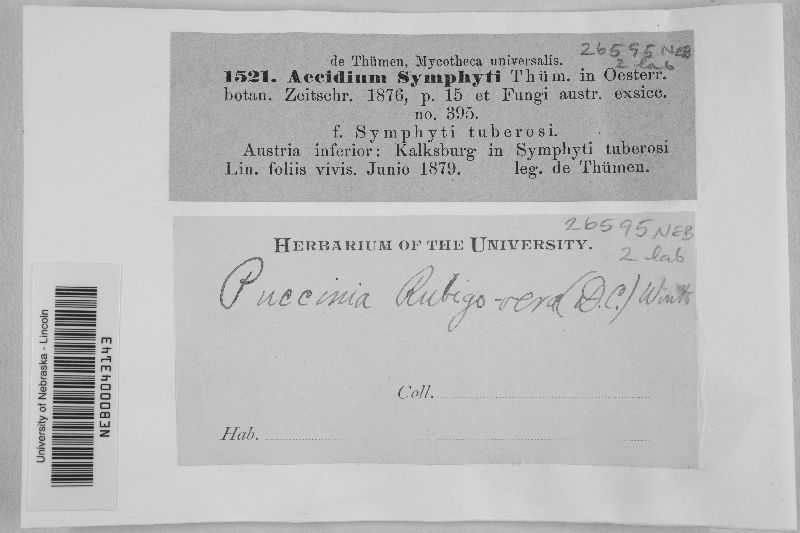 26595 NEB
2 lab
de Thümen, Mycotheca universalis.
1521. Aecidium Symphyti Thüm. in Oesterr.
botan. Zeitschr. 1876, p. 15 et Fungi austr. exsicc.
no. 395.
f. Symphyti tuberosi.
Austria inferior: Kalksburg in Symphyti tuberosi
Lin. foliis vivis. Junio 1879. leg. de Thümen.
26595 NEB
2 lab
HERBARIUM OF THE UNIVERSITY.
Puccinia Rubigo-vera (D.C.) Wint
Coll.
Hab.
University of Nebraska - Lincoln
NEB00043143